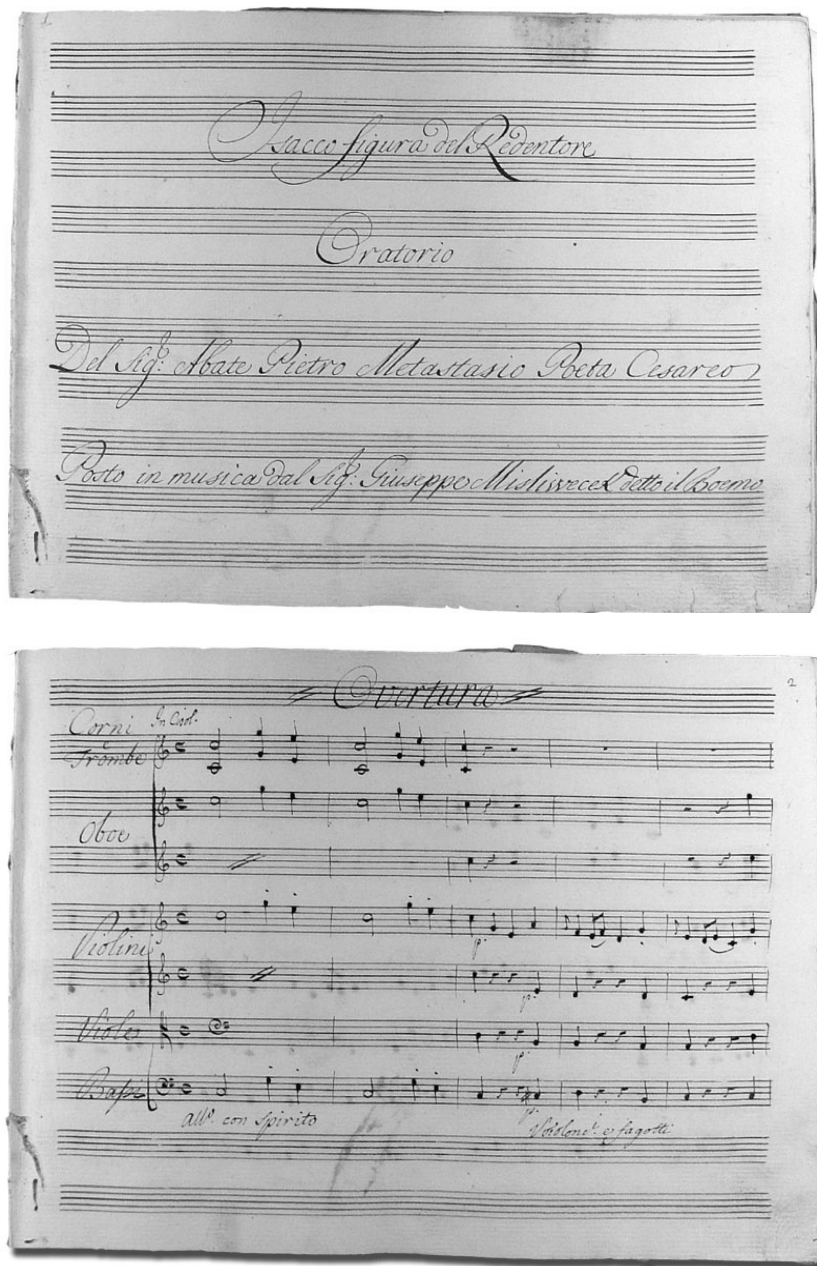 1
Isacco figura del Redentore
Oratorio
Del Sig.r Abate Pietro Metastasio Poeta Cesareo
Posto in musica dal Sig.r Giuseppe Misliwecek detto il Boemo
2
Overtura
Corni
e
Trombe
Oboe
Violini
p.
p.
Viole
p.
Bassi
p.
all.o con spirito
e fagotti